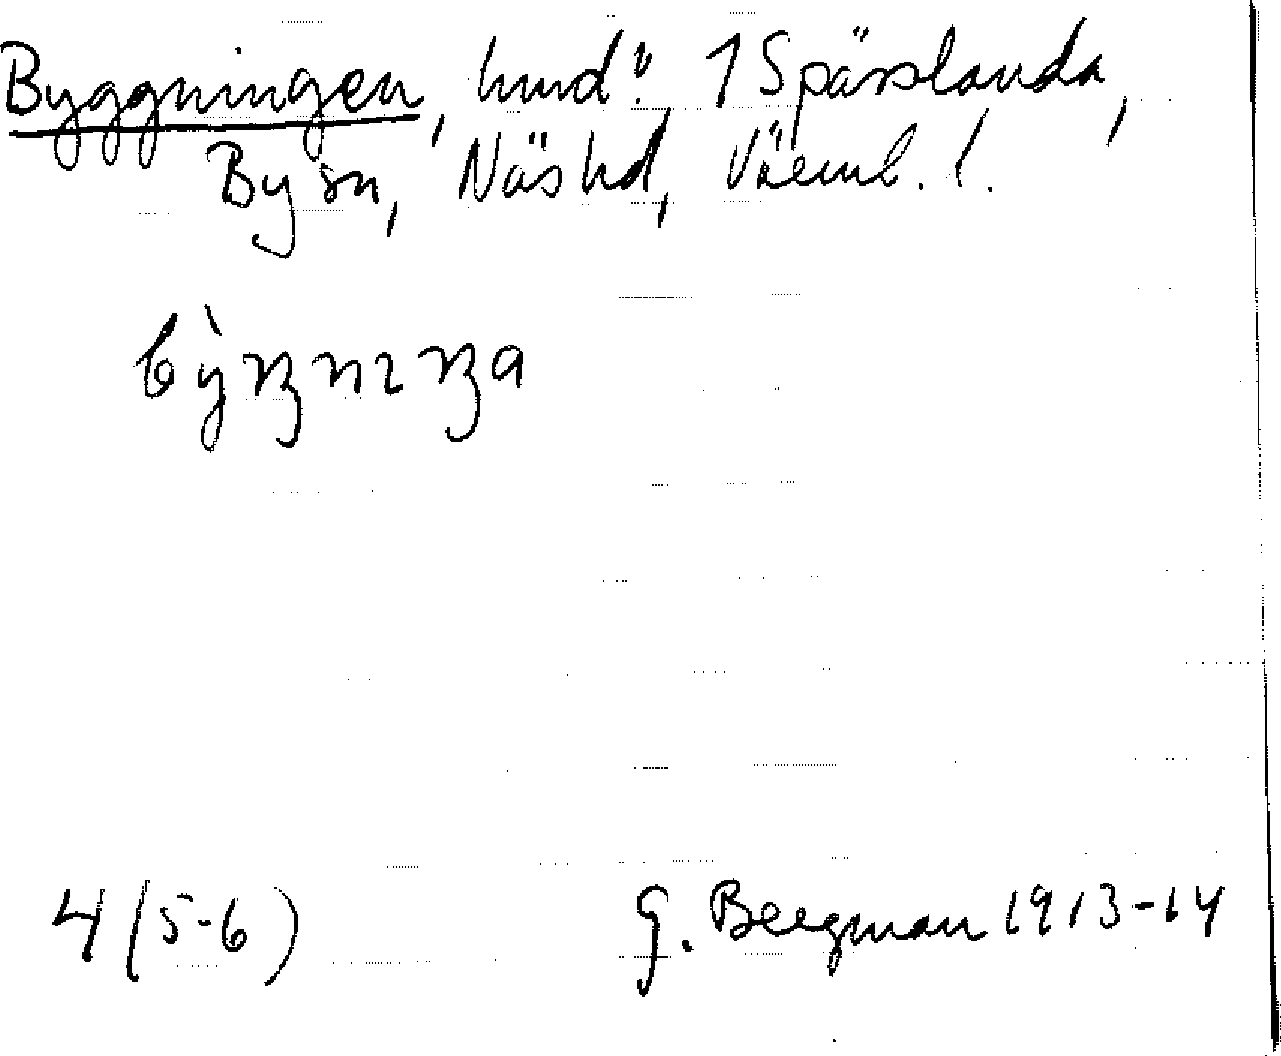 Byggningen, hmd? 1 Spässlanda,
By sn, Näs hd, Värml. l.
bỳŋnɩŋa
4 (5-6) G. Bergman 1913-14